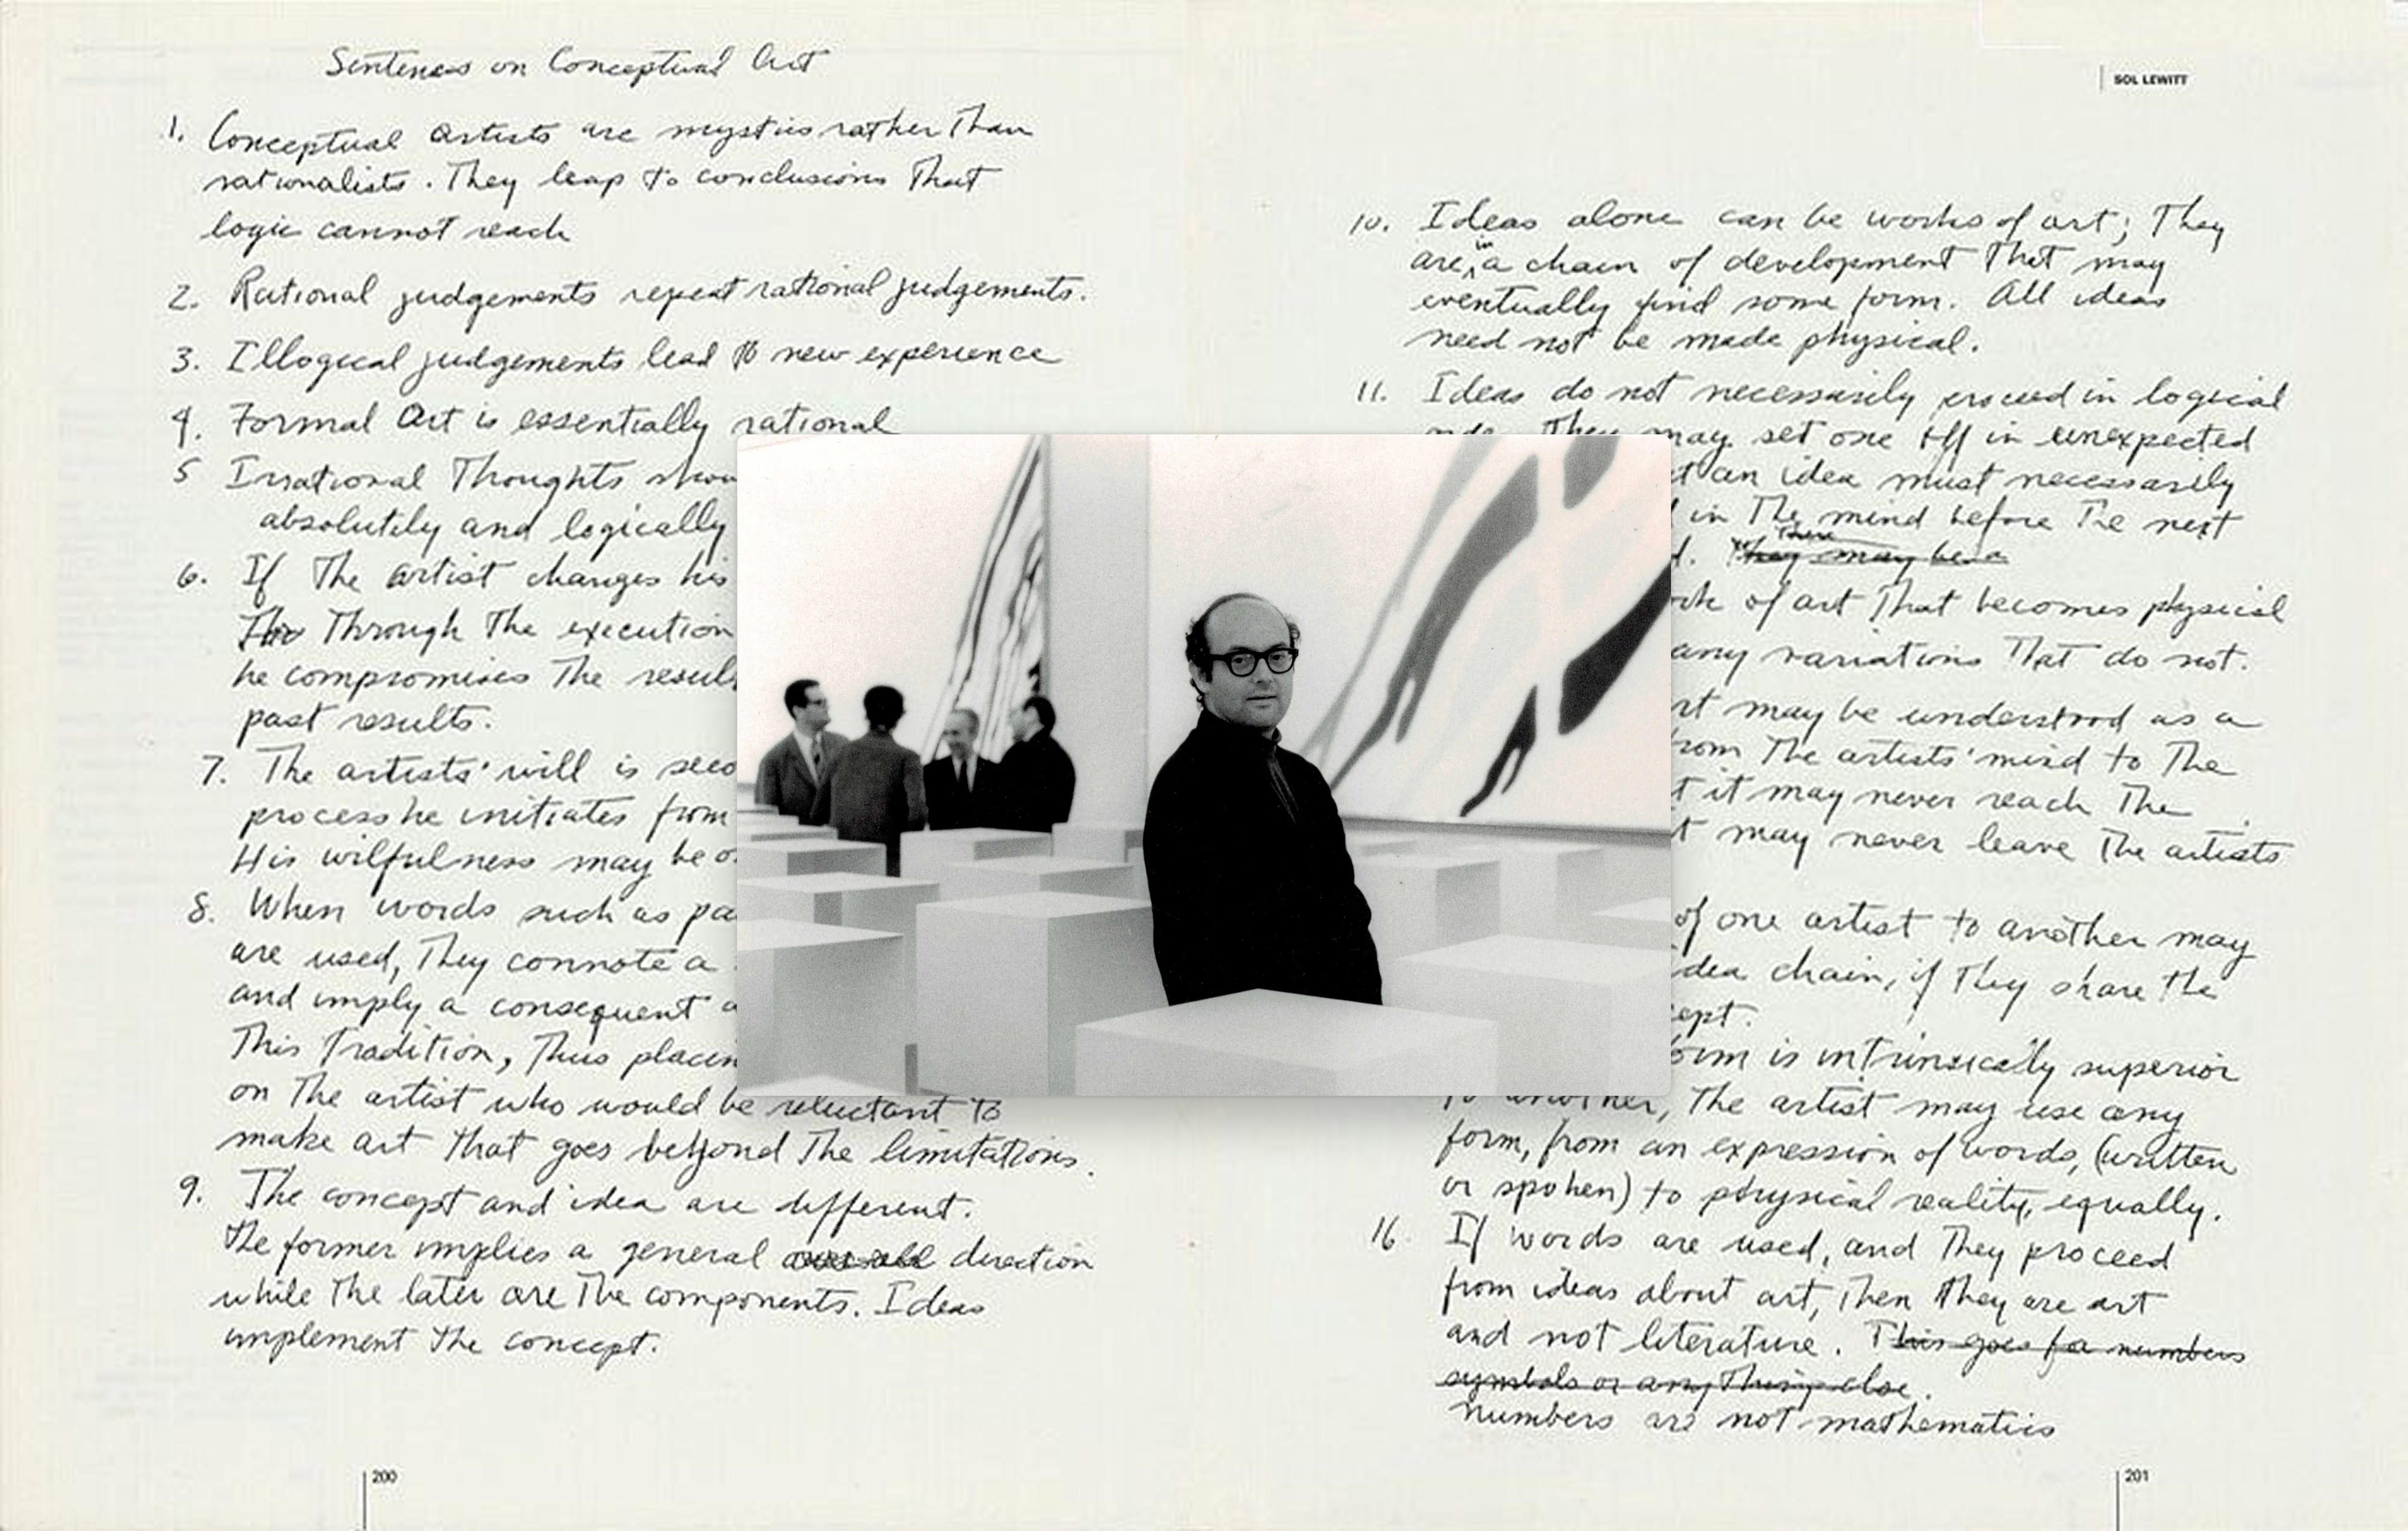 Sentences on Conceptual Art
1. Conceptual Artists are mystics rather than
rationalists. They leap to conclusions that
logic cannot reach
2. Rational judgements repeat rational judgements.
3. Illogical judgements lead to new experience
4. Formal Art is essentially rational
5 Irrational Thoughts
absolutely and logically
6. If the artist changes his
through the execution
he compromises the
past results.
7. The artists' will is
process he initiates from
His wilfulness may be
8. When words such as
are used, they connote a
and imply a consequent
This tradition, thus
on the artist who would be reluctant to
make art that goes beyond the limitations.
9. The concept and idea are different.
The former implies a general over-all direction
while the later are the components. Ideas
implement the concept.
200
SOL LEWITT
10. Ideas alone can be works of art; they
are in a chain of development that may
eventually find some form. All ideas
need not be made physical.
11. Ideas do not necessarily proceed in logical
They may set one off in unexpected
an idea must necessarily
in the mind before the next
There They may be a
of art that becomes physical
variations that do not.
may be understood as a
the artists' mind to the
it may never reach the
may never leave the artists
of one artist to another may
chain, if they share the
is intrinsically superior
to another, the artist may use any
form, from an expression of words, (written
or spoken) to physical reality, equally.
16. If words are used, and they proceed
from ideas about art, then they are art
and not literature. This goes for numbers
symbols or anything else.
numbers are not mathematics
201